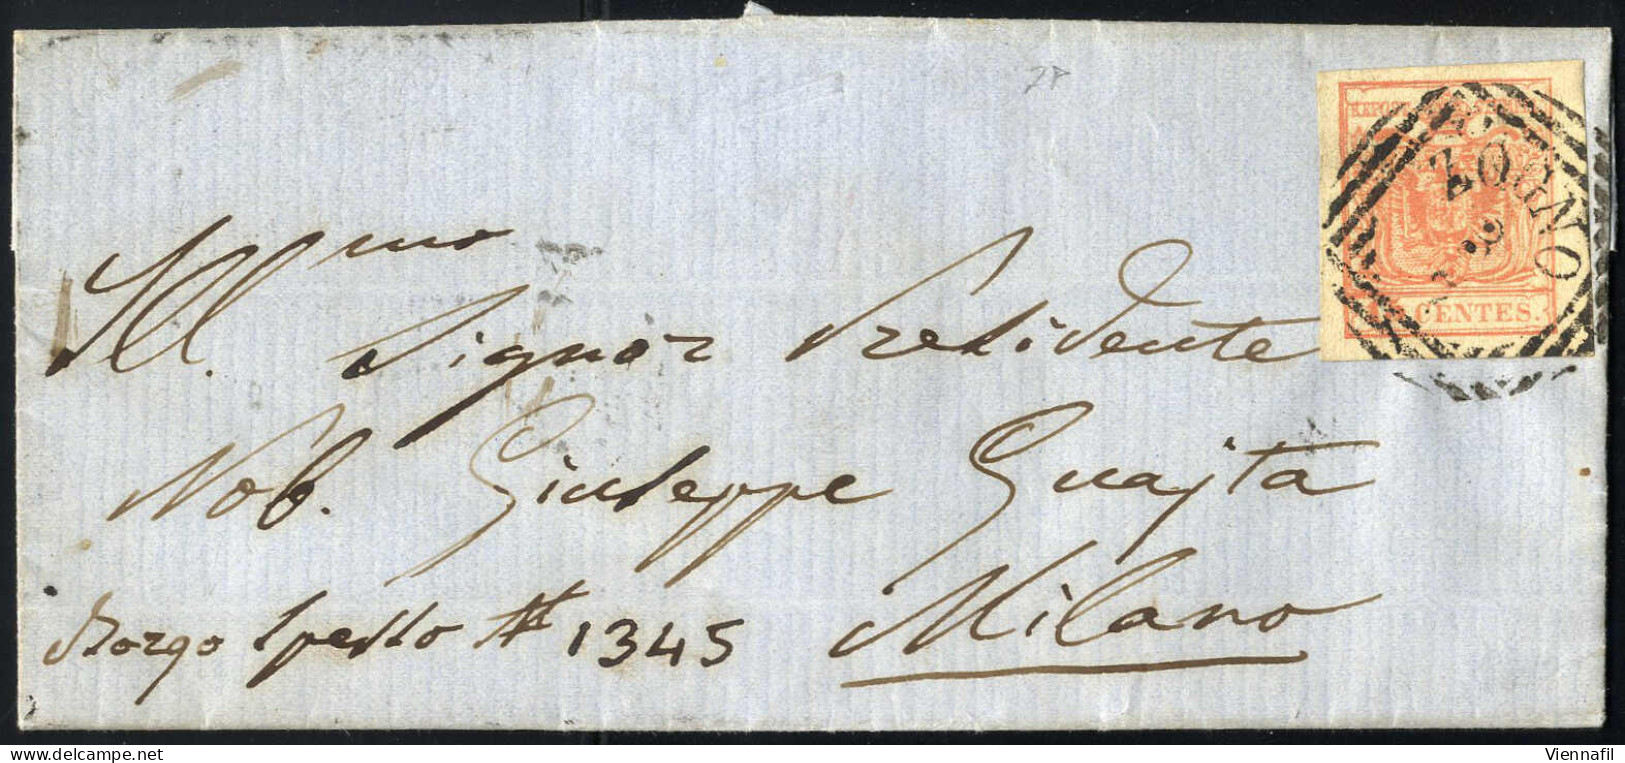 KKPOST
ZOGNO
CENTES.
Ill.mo Signor Presidente
Nob. Giuseppe Guajta
Milano
Borgo Spesso N 1345
www.delcampe.net
Viennafil